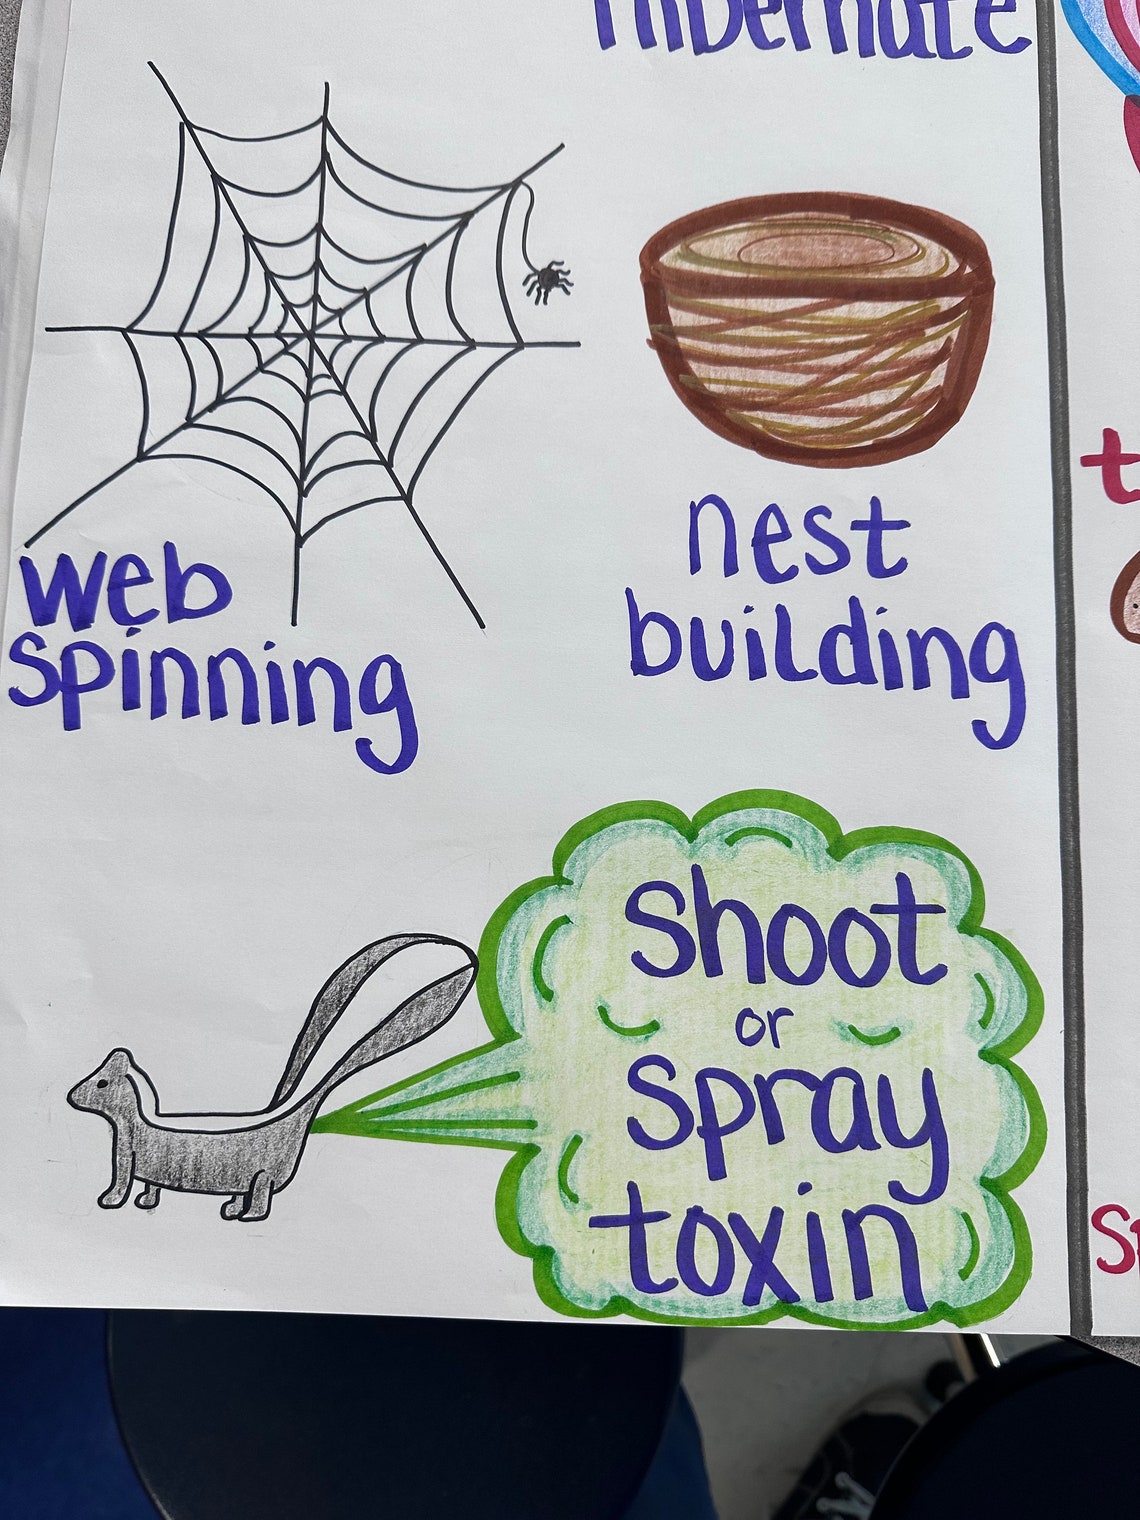 hibernate
web
spinning
nest
building
shoot
or
spray
toxin